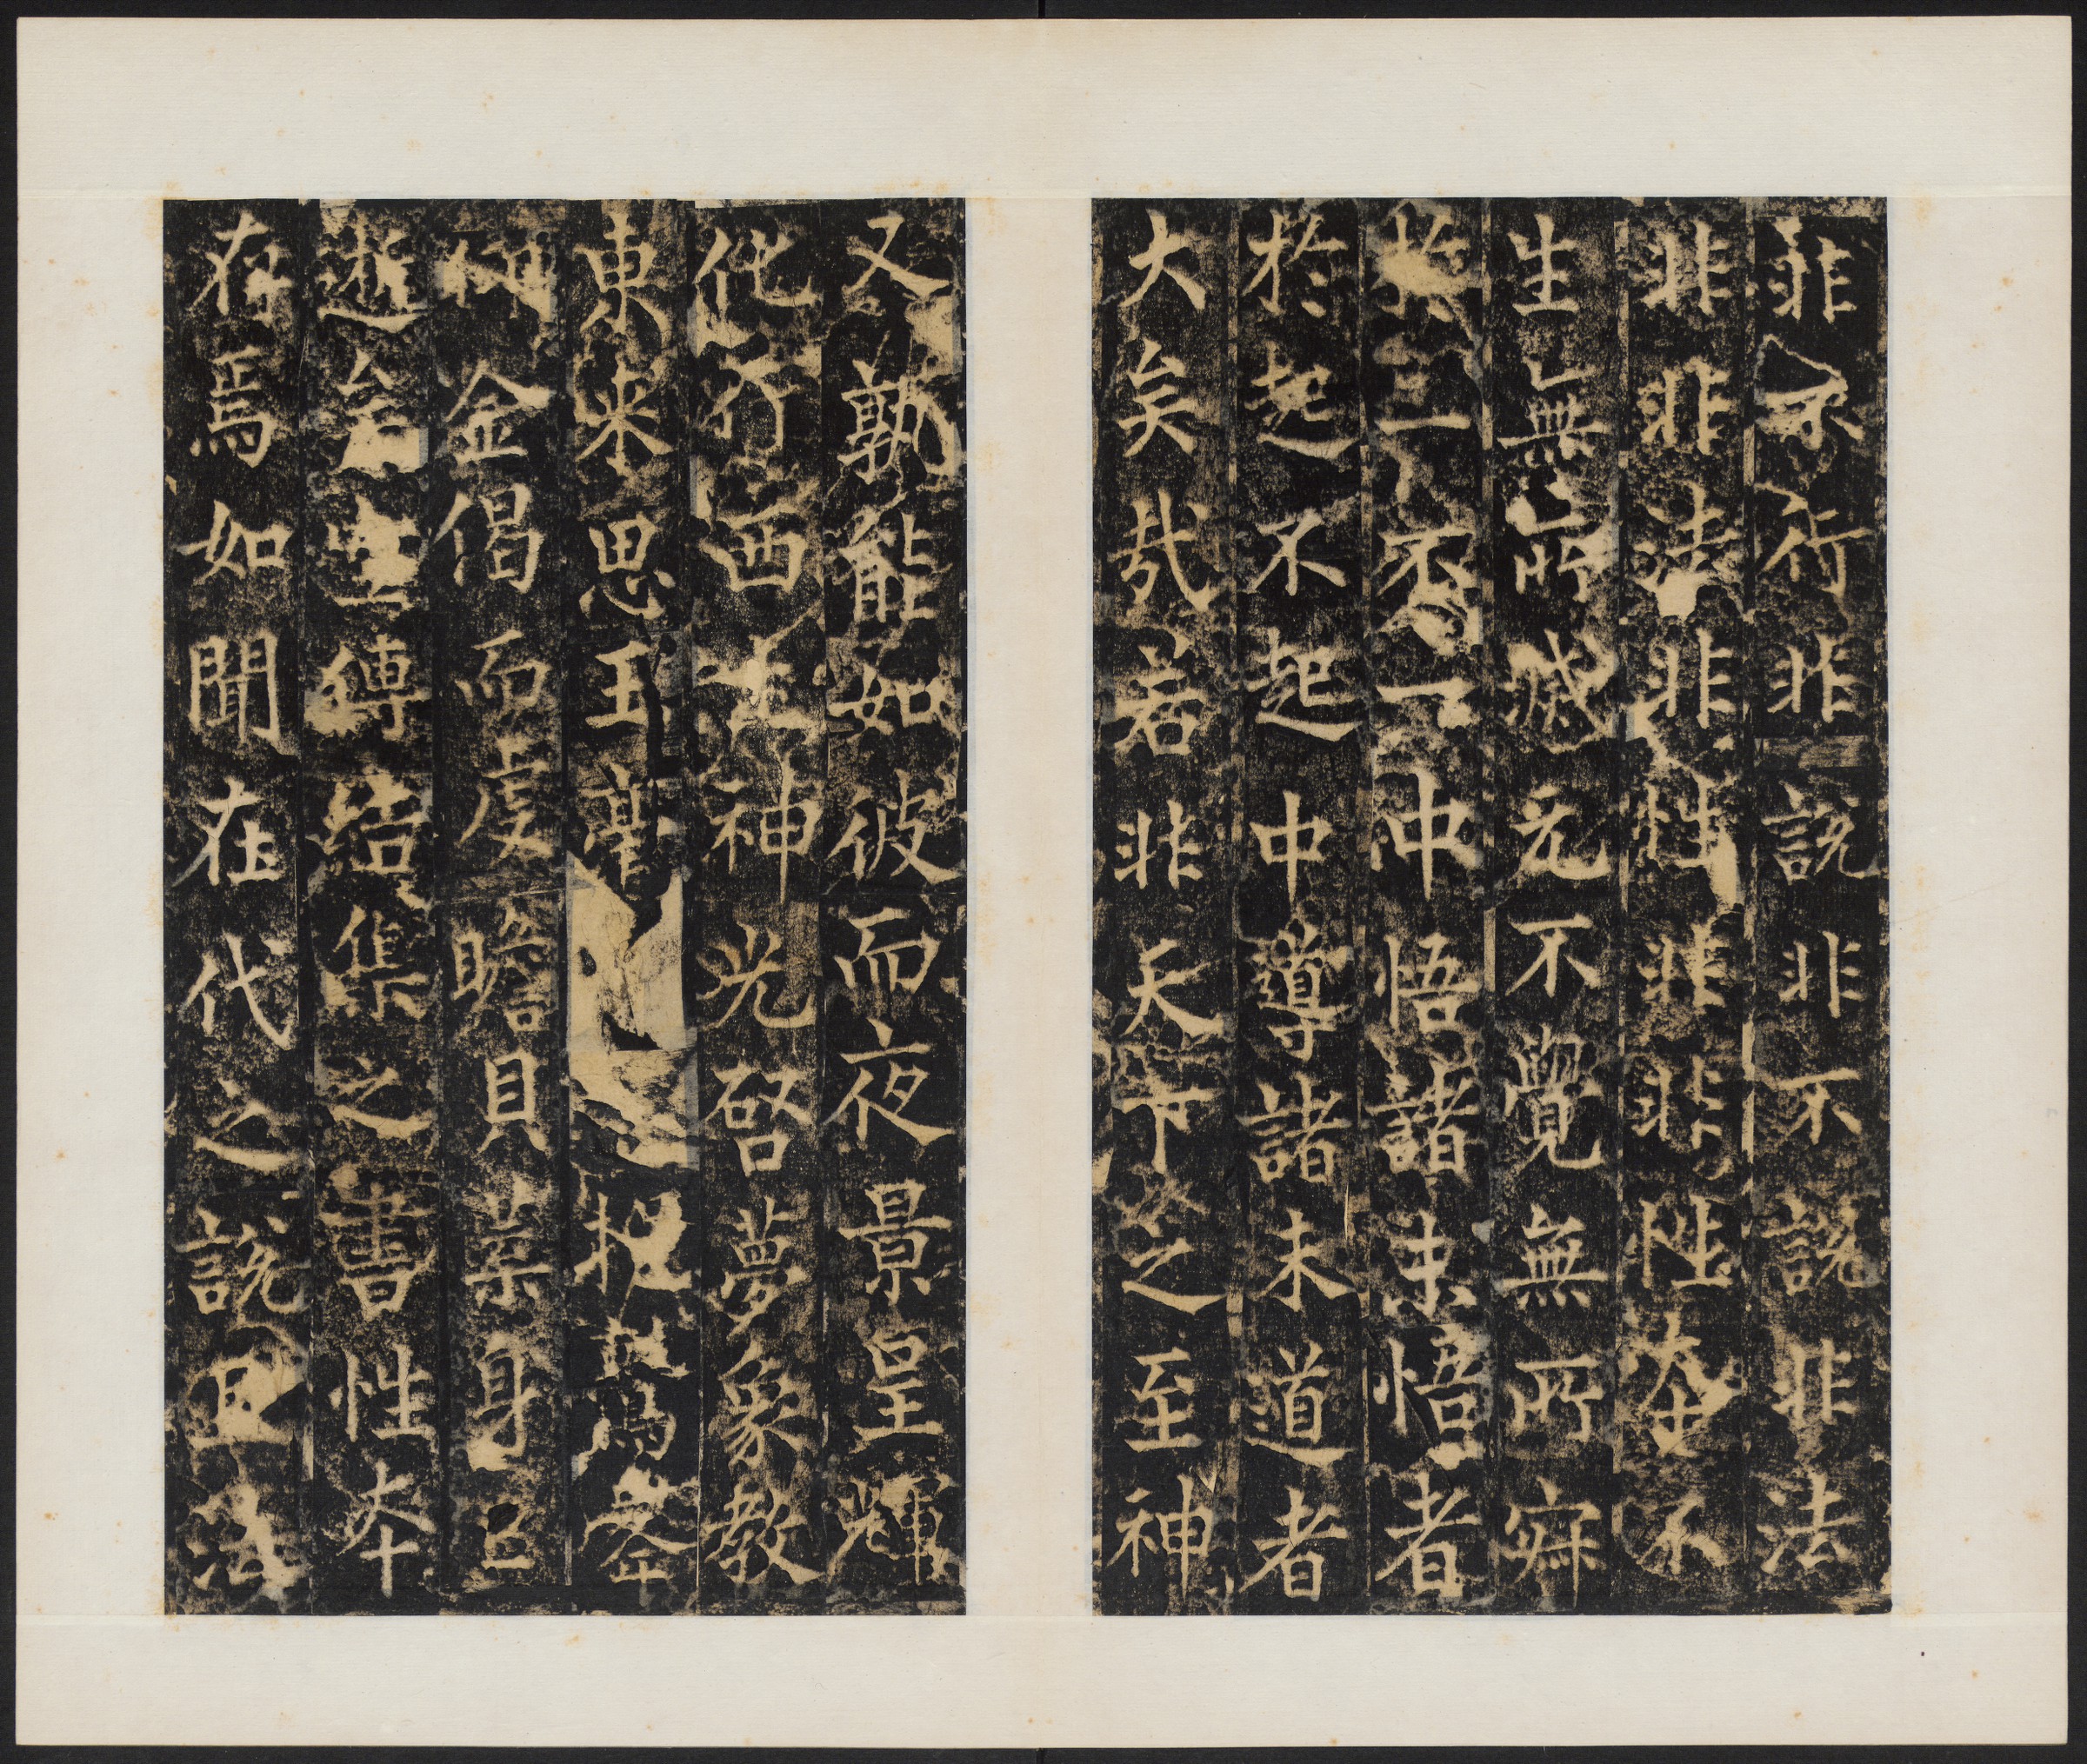 非不行非說非不說非法
非非法非性非非性本不
生無所滅元不覺無所寐
於一不一中悟諸未悟者
於起不起中導諸未道者
大矣哉若非天下之至神
又孰能如彼而夜景皇輝
化行西神光啓夢象教
東來思玉毫想鷲峯
金偈而虔瞻貝葉身
逝生縛結集之書性本
存焉如聞在代之說且法